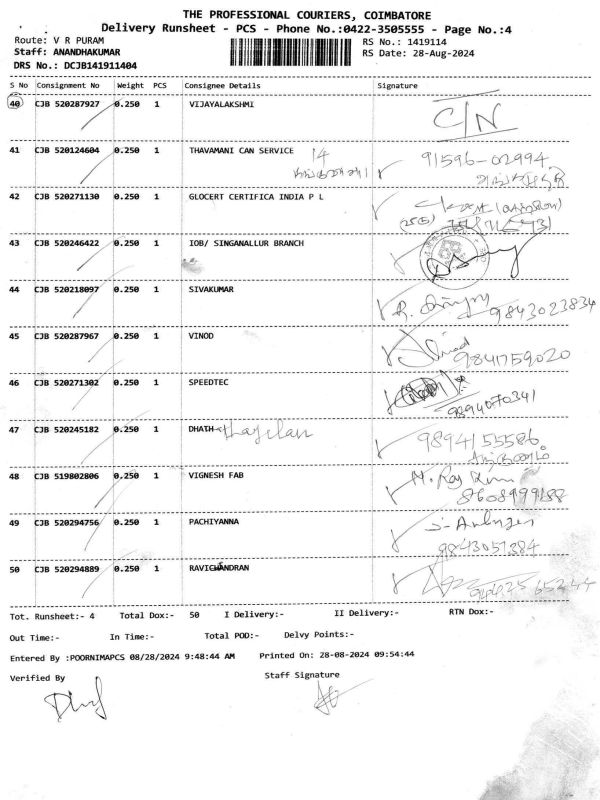 THE PROFESSIONAL COURIERS, COIMBATORE
Delivery Runsheet - PCS - Phone No.:0422-3505555 - Page No.:4
Route: V R PURAM RS No.: 1419114
Staff: ANANDHAKUMAR RS Date: 28-Aug-2024
DRS No.: DCJB141911404
S No Consignment No Weight PCS Consignee Details Signature
40 CJB 520287927 0.250 1 VIJAYALAKSHMI C/N
41 CJB 520124604 0.250 1 THAVAMANI CAN SERVICE 14 91596-02994
42 CJB 520271130 0.250 1 GLOCERT CERTIFICA INDIA P L
43 CJB 520246422 0.250 1 IOB/ SINGANALLUR BRANCH
44 CJB 520218097 0.250 1 SIVAKUMAR 9843023834
45 CJB 520287967 0.250 1 VINOD Vinod
9841759020
46 CJB 520271302 0.250 1 SPEEDTEC
9894070341
47 CJB 520245182 0.250 1 DHATH 9894155586
48 CJB 519802806 0.250 1 VIGNESH FAB
8608999188
49 CJB 520294756 0.250 1 PACHIYANNA
9843051384
50 CJB 520294889 0.250 1 RAVICHANDRAN
Tot. Runsheet:- 4 Total Dox:- 50 I Delivery:- II Delivery:- RTN Dox:-
Out Time:- In Time:- Total POD:- Delvy Points:-
Entered By :POORNIMAPCS 08/28/2024 9:48:44 AM Printed On: 28-08-2024 09:54:44
Verified By Staff Signature